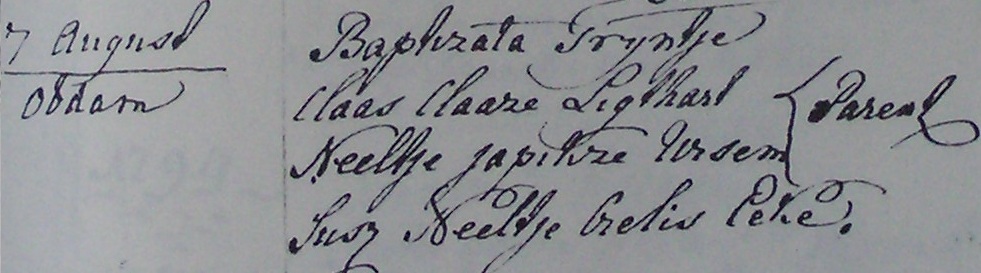 7 August
Obdam
Baptizata Tryntje
Claas Claaze Ligthart
Neeltje Japikze Ursem } Parent
Susz Neeltje Crelis Peke.